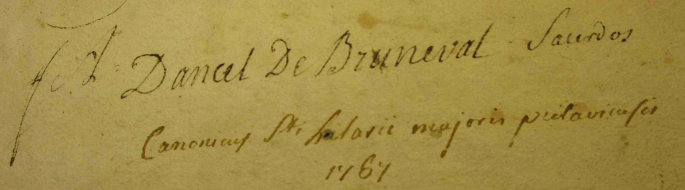 Dancel De Bruneval Sacerdos
Canonicus Sti hilarii majoris pictaviensis
1767